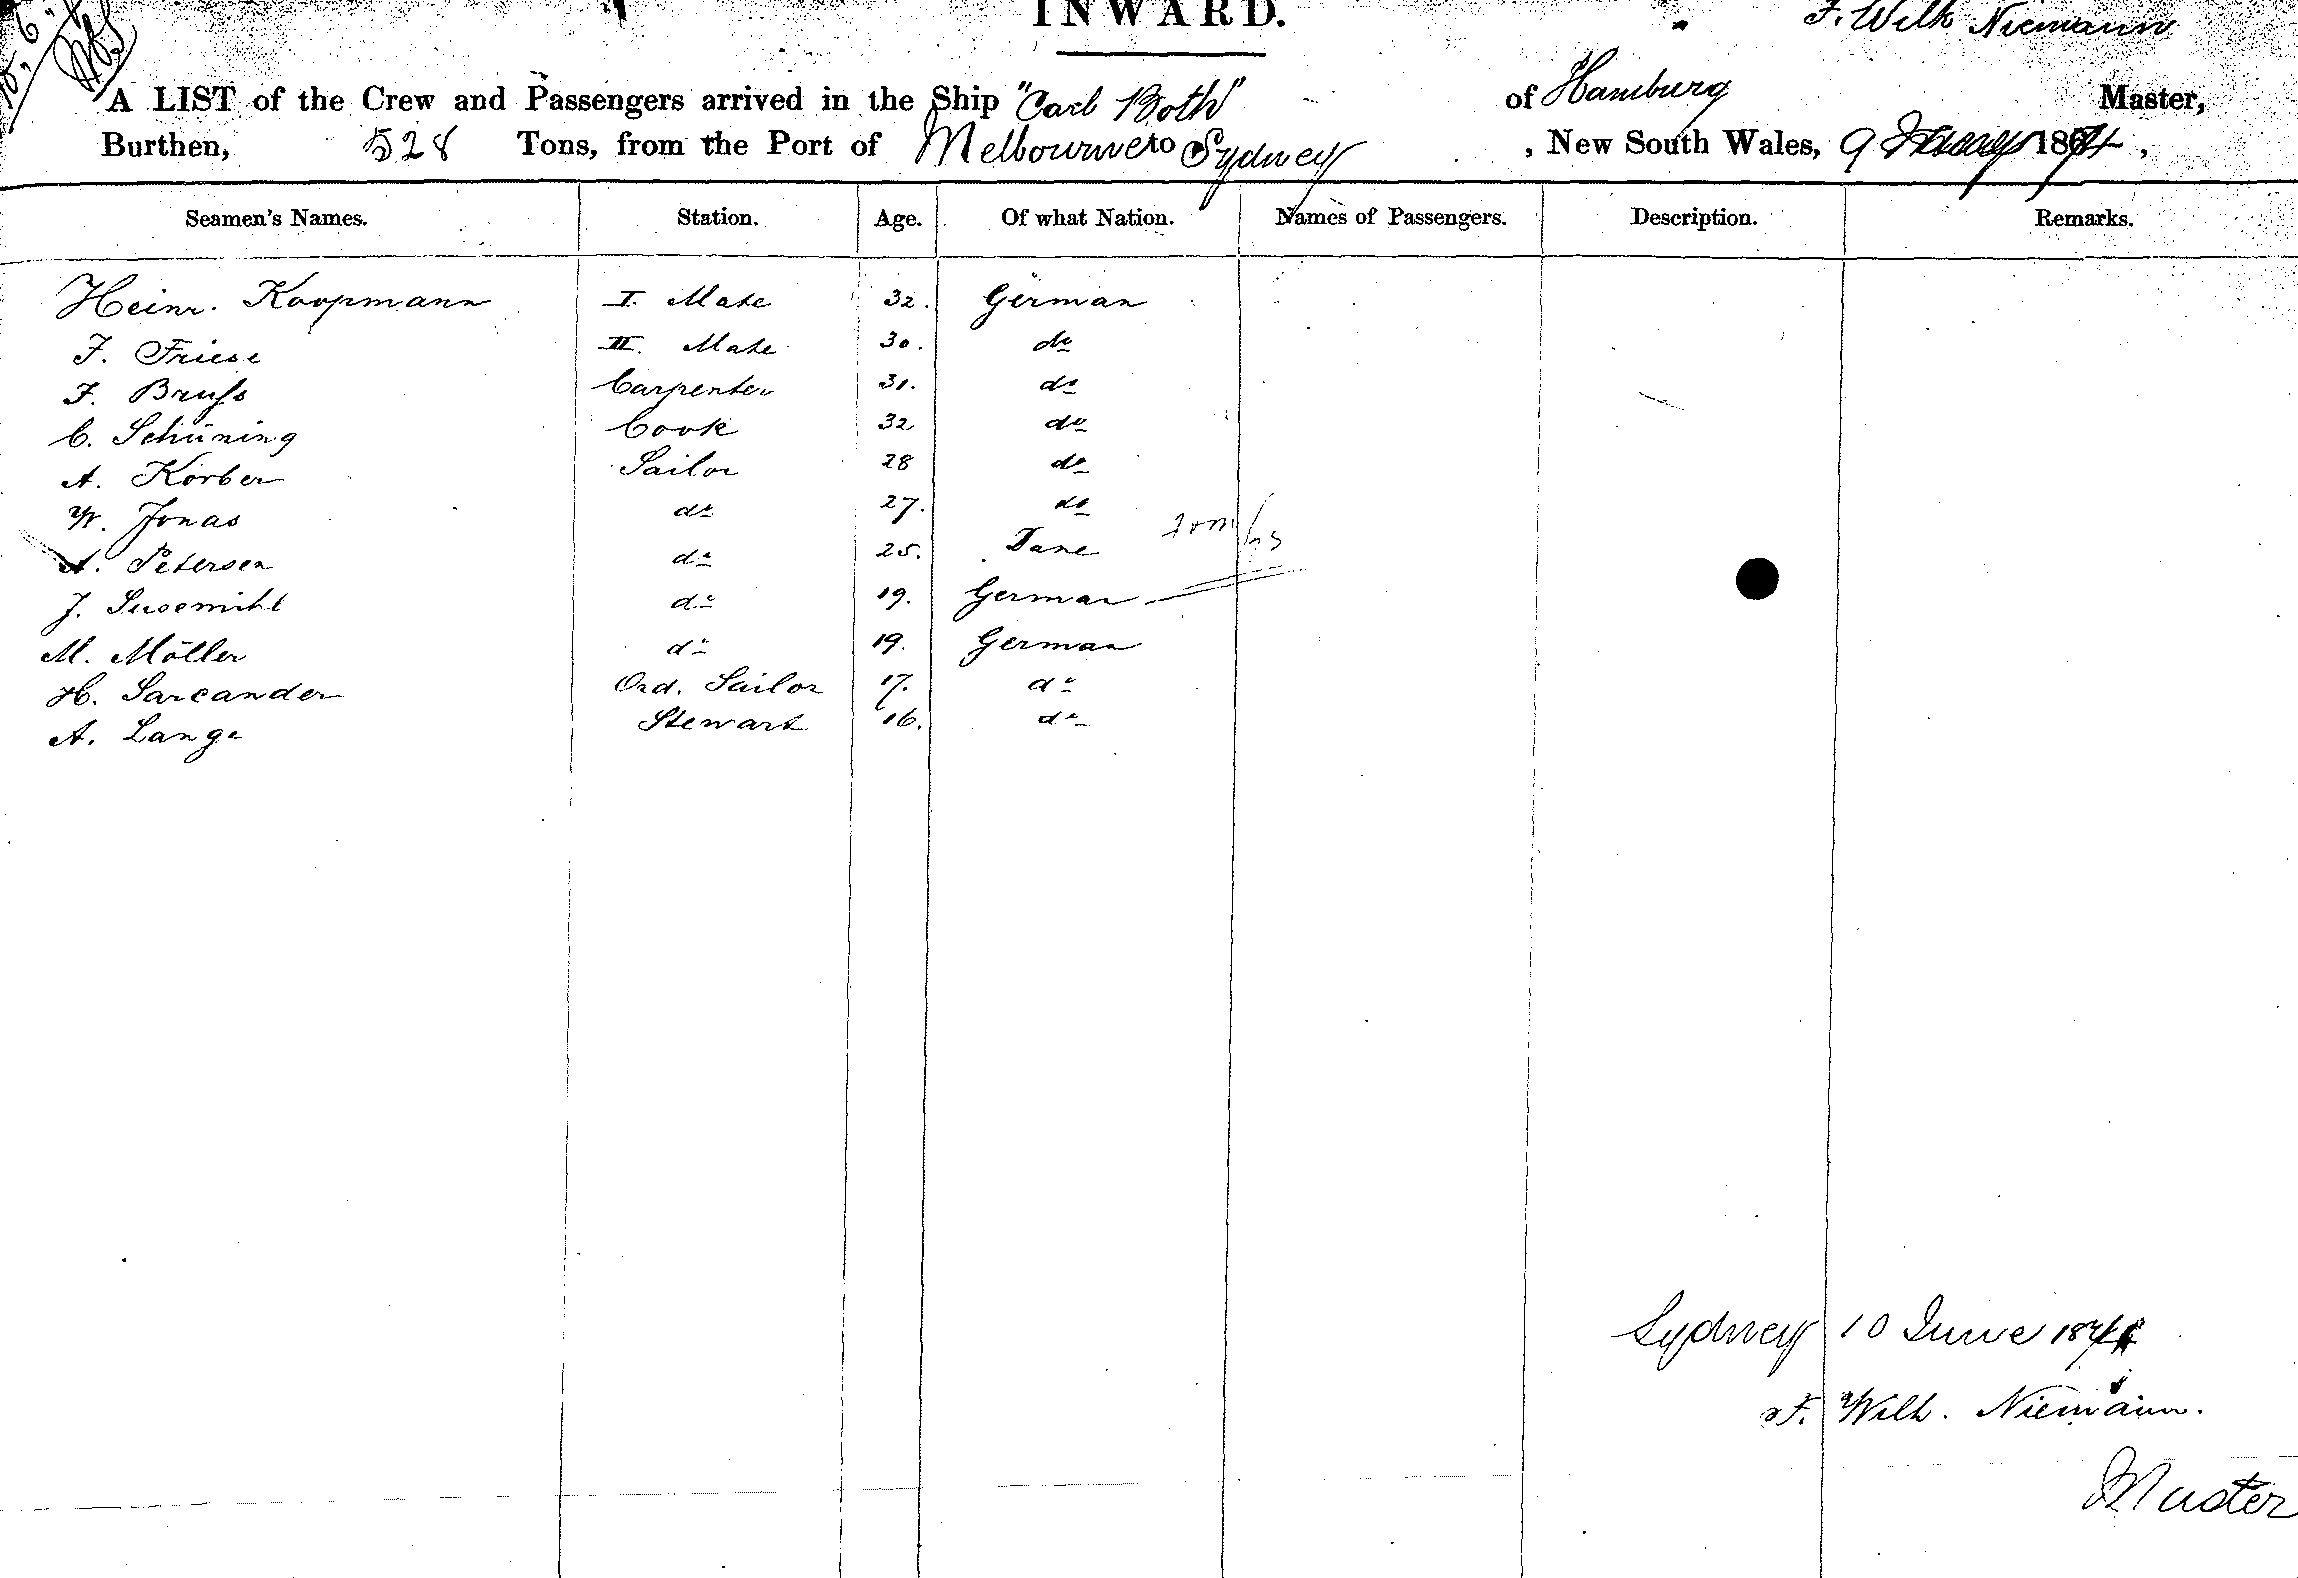 INWARD.
F. Wilh Niemann
A LIST of the Crew and Passengers arrived in the Ship "Carl Both" of Hamburg Master,
Burthen, 528 Tons, from the Port of Melbourne to Sydney, New South Wales, 9 1874,
Seamen's Names. Station. Age. Of what Nation. Names of Passengers. Description. Remarks.
Heinr. Koopmann I. Mate 32. German
F. Friese II. Mate 30. do
F. Bruss Carpenter 31. do
C. Schüning Cook 32 do
A. Körber Sailor 28 do
W. Jonas do 27. do
A. Petersen do 25. Dane
J. Susemihl do 19. German
M. Möller do 19. German
H. Sarcander Ord. Sailor 17. do
A. Lange Stewart 16. do
Sydney 10 June 1874
F. Wilh. Niemann.
Master